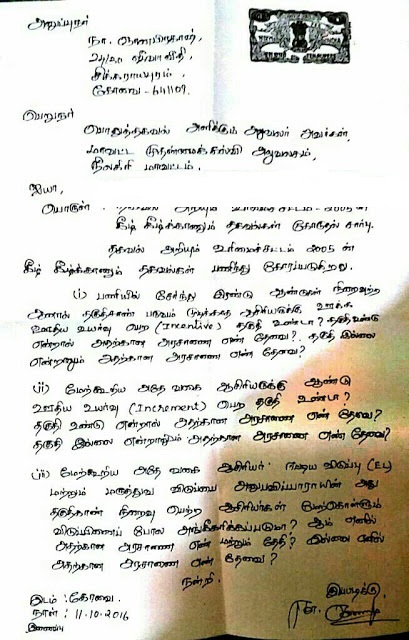 அனுப்புநர்
நா. ஞானபிரகாசன்,
24/20 சிவா வீதி,
சித்தராபுரம்,
கோவை - 641109.
பெறுநர்
பொதுத்தகவல் அளிக்கும் அலுவலர் அவர்கள்,
மாவட்ட முதன்மைக்கல்வி அலுவலகம்,
நீலகிரி மாவட்டம்.
ஐயா,
பொருள் : தகவல் அறியும் உரிமைச்சட்டம் - 2005 ன்
கீழ் கீழ்க்காணும் தகவல்கள் கோருதல் சார்பு.
தகவல் அறியும் உரிமைச்சட்டம் 2005 ன்
கீழ் கீழ்க்காணும் தகவல்கள் பணிந்து கோரப்படுகிறது.
i) பணியில் சேர்ந்து இரண்டு ஆண்டுகள் நிறைவுற்ற
ஆனால் தகுதிகாண் பருவம் முடிக்காத ஆசிரியருக்கு ஊக்க
ஊதிய உயர்வு பெற (Incentive) தகுதி உண்டா? தகுதி உண்டு
என்றால் அதற்கான அரசாணை எண் தேவை? தகுதி இல்லை
என்றாலும் அதற்கான அரசாணை எண் தேவை?
ii) மேற்கூறிய அதே வகை ஆசிரியருக்கு ஆண்டு
ஊதிய உயர்வு (Increment) பெற தகுதி உண்டா?
தகுதி உண்டு என்றால் அதற்கான அரசாணை எண் தேவை?
தகுதி இல்லை என்றாலும் அதற்கான அரசாணை எண் தேவை?
iii) மேற்கூறிய அதே வகை ஆசிரியர் ஈட்டிய விடுப்பு (EL)
மற்றும் மருத்துவ விடுப்பை அனுபவிப்பாராயின் அது
தகுதிகாண் நிறைவு பெற்ற ஆசிரியர்கள் மேற்கொள்ளும்
விடுப்பினைப் போல அங்கீகரிக்கப்படுமா? ஆம் எனில்
அதற்கான அரசாணை எண் மற்றும் தேதி? இல்லை எனில்
அதற்கான அரசாணை எண் தேவை?
நன்றி.
இடம் : கோவை. இப்படிக்கு
நாள் : 11-10-2016
இணைப்பு